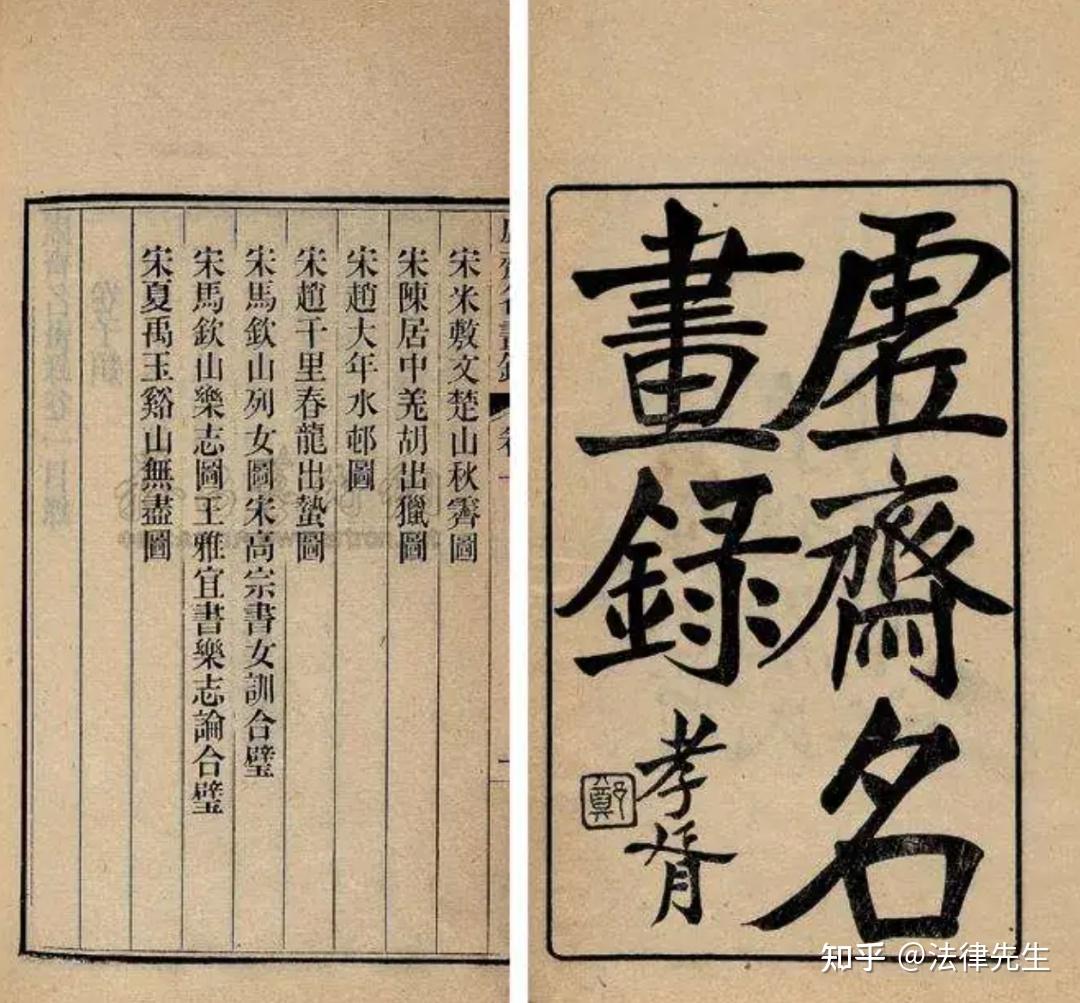 虛齋名
畫錄
孝胥
鄭
宋米敷文楚山秋霽圖
宋陳居中羌胡出獵圖
宋趙大年水邨圖
宋趙千里春龍出蟄圖
宋馬欽山列女圖宋高宗書女訓合璧
宋馬欽山樂志圖王雅宜書樂志論合璧
宋夏禹玉谿山無盡圖
知乎 @法律先生